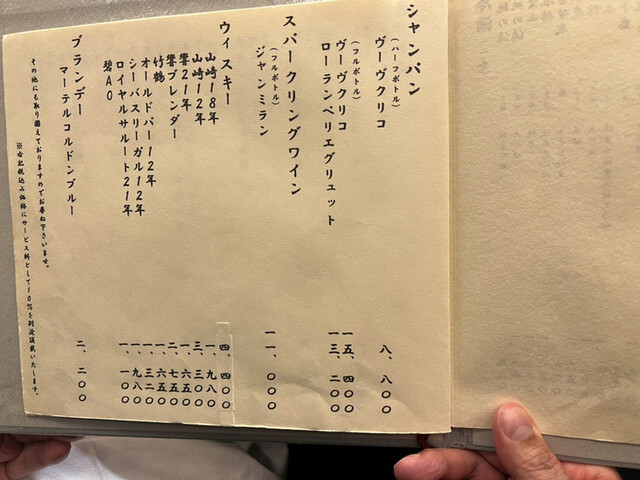 シャンパン
（ハーフボトル）
ヴーヴクリコ 八、八〇〇
（フルボトル）
ヴーヴクリコ 一五、四〇〇
ローランペリエグリュット 一三、二〇〇
スパークリングワイン
（フルボトル）
ジャンミラン 一一、〇〇〇
ウィスキー
山崎18年 四、四〇〇
山崎12年 一、九八〇
響21年 三、三〇〇
響ブレンダー 一、六五〇
竹鶴 二、七五〇
オールドパー12年 一、六五〇
シーバスリーガル12年 一、三二〇
ロイヤルサルート21年 一、九八〇
碧AO 一、一〇〇
ブランデー
マーテルコルドンブルー 二、二〇〇
その他にも取り揃えておりますのでお尋ね下さいませ。
※右記税込み価格にサービス料として10％を別途頂戴いたします。